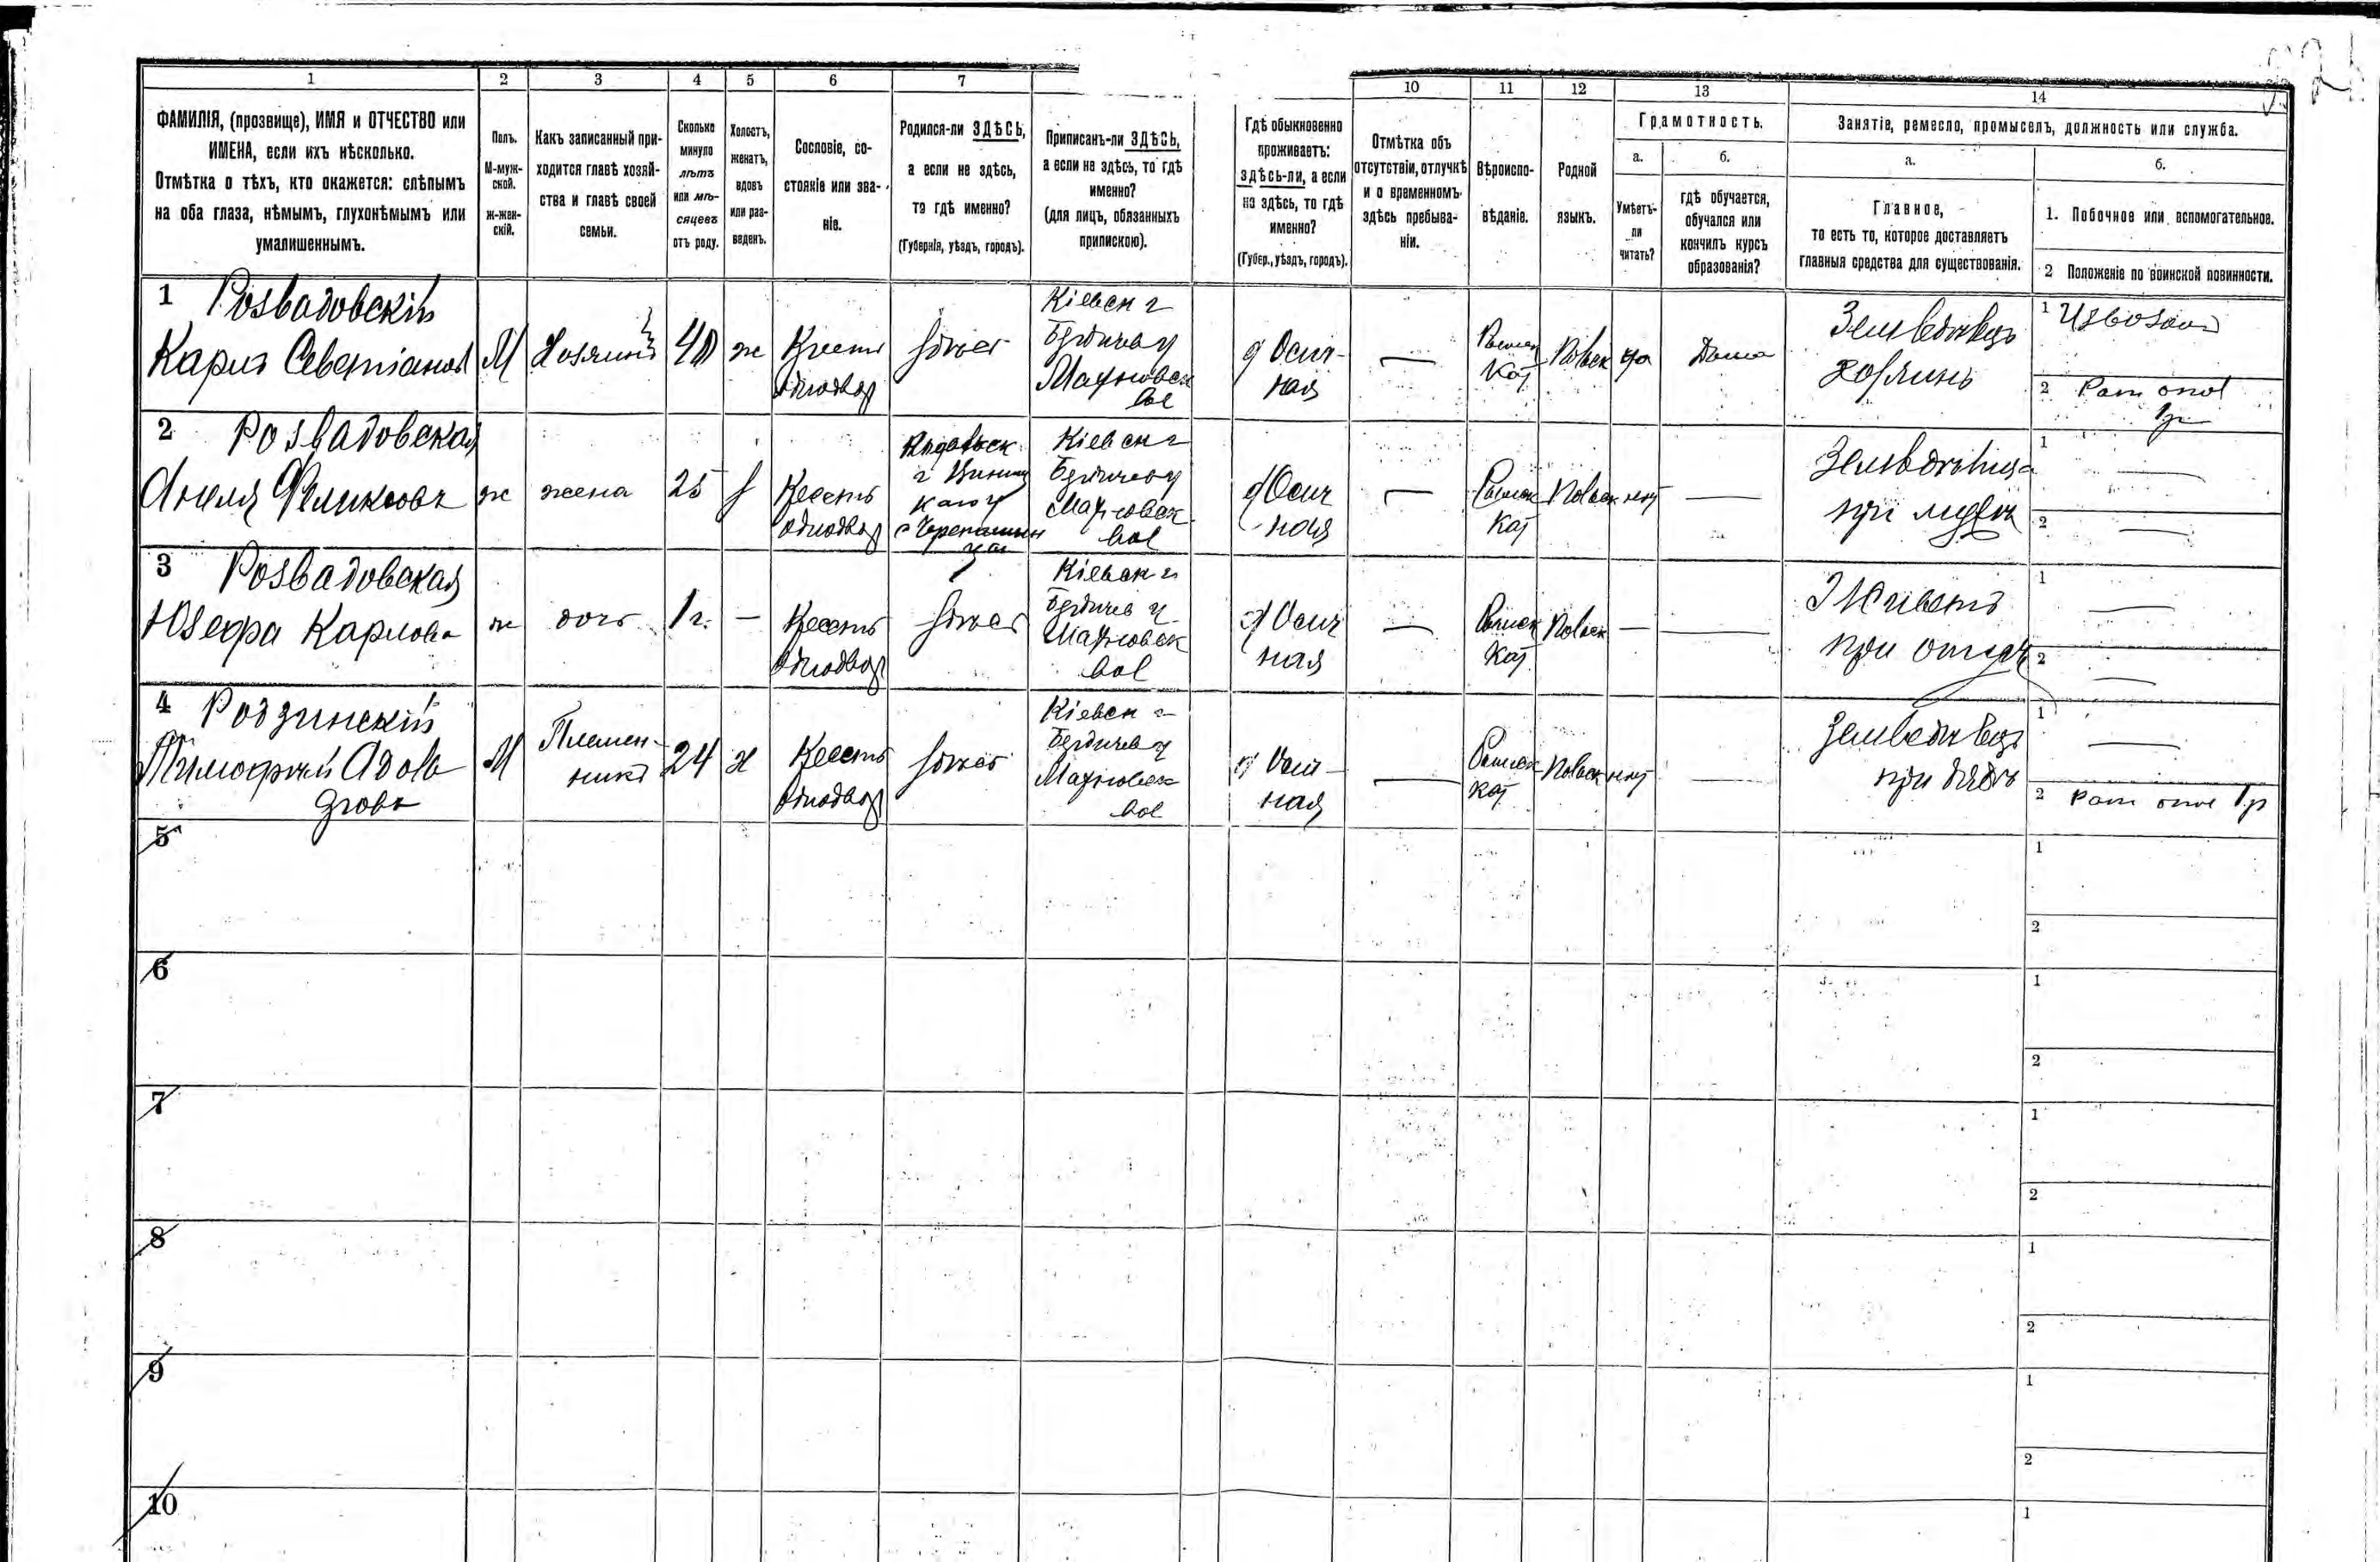 1 2 3 4 5 6 7 10 11 12 13 14
ФАМИЛІЯ, (прозвище), ИМЯ и ОТЧЕСТВО или
ИМЕНА, если ихъ нѣсколько.
Отмѣтка о тѣхъ, кто окажется: слѣпымъ
на оба глаза, нѣмымъ, глухонѣмымъ или
умалишеннымъ.
Полъ.
М-муж-
ской.
Ж-жен-
скій.
Какъ записанный при-
ходится главѣ хозяй-
ства и главѣ своей
семьи.
Сколько
минуло
лѣтъ
или мѣ-
сяцевъ
отъ роду.
Холостъ,
женатъ,
вдовъ
или раз-
веденъ.
Сословіе, со-
стояніе или зва-
ніе.
Родился-ли ЗДѢСЬ,
а если не здѣсь,
то гдѣ именно?
(Губернія, уѣздъ, городъ).
Приписанъ-ли ЗДѢСЬ,
а если не здѣсь, то гдѣ
именно?
(для лицъ, обязанныхъ
припискою).
Гдѣ обыкновенно
проживаетъ:
здѣсь-ли, а если
не здѣсь, то гдѣ
именно?
(Губер., уѣздъ, городъ).
Отмѣтка объ
отсутствіи, отлучкѣ
и о временномъ
здѣсь пребыва-
ніи.
Вѣроиспо-
вѣданіе.
Родной
языкъ.
Грамотность.
а.
Умѣетъ-
ли
читать?
б.
гдѣ обучается,
обучался или
кончилъ курсъ
образованія?
Занятіе, ремесло, промыселъ, должность или служба.
а.
Главное,
то есть то, которое доставляетъ
главныя средства для существованія.
б.
1. Побочное или вспомогательное.
2 Положеніе по воинской повинности.
1 Розвадовскій
Карлъ
М
Хозяинъ
40
ж
Крест
однодвор
здѣсь
Кіевск г
Бердичев у
Махновск
вол
д Осич-
ная
—
Римск
Кат
Польск
да
Дома
Земледѣлецъ
хозяинъ
1 Извозом
2 Рат опол
1 р
2 Розвадовская
Анеля Феликсова
ж
жена
25
з
Крест
однодвор
Подольск
г Винниц
каго у
Кіевск г
Бердичев у
Махновск
вол
д Осич
ная
—
Римск
Кат
Польск
нет
—
при мужѣ
1 —
2 —
3 Розвадовская
Юзефа Карлова
ж
дочь
1 г.
—
Крест
однодвор
здѣсь
Кіевск г
Бердичев у
Махновск
вол
д Осич
ная
—
Римск
Кат
Польск
—
—
Живетъ
при отцѣ
1 —
2 —
4
Тимофей Адоль
фовъ
М
Племен-
никъ
24
х
Крест
однодвор
здѣсь
Кіевск г
Бердичев у
Махновск
вол
д Осич-
ная
—
Римск
Кат
Польск
нет
—
Земледѣлецъ
при дядѣ
1 —
2 Рат опол 1 р
5
1
2
6
1
2
7
1
2
8
1
2
9
1
2
10
1